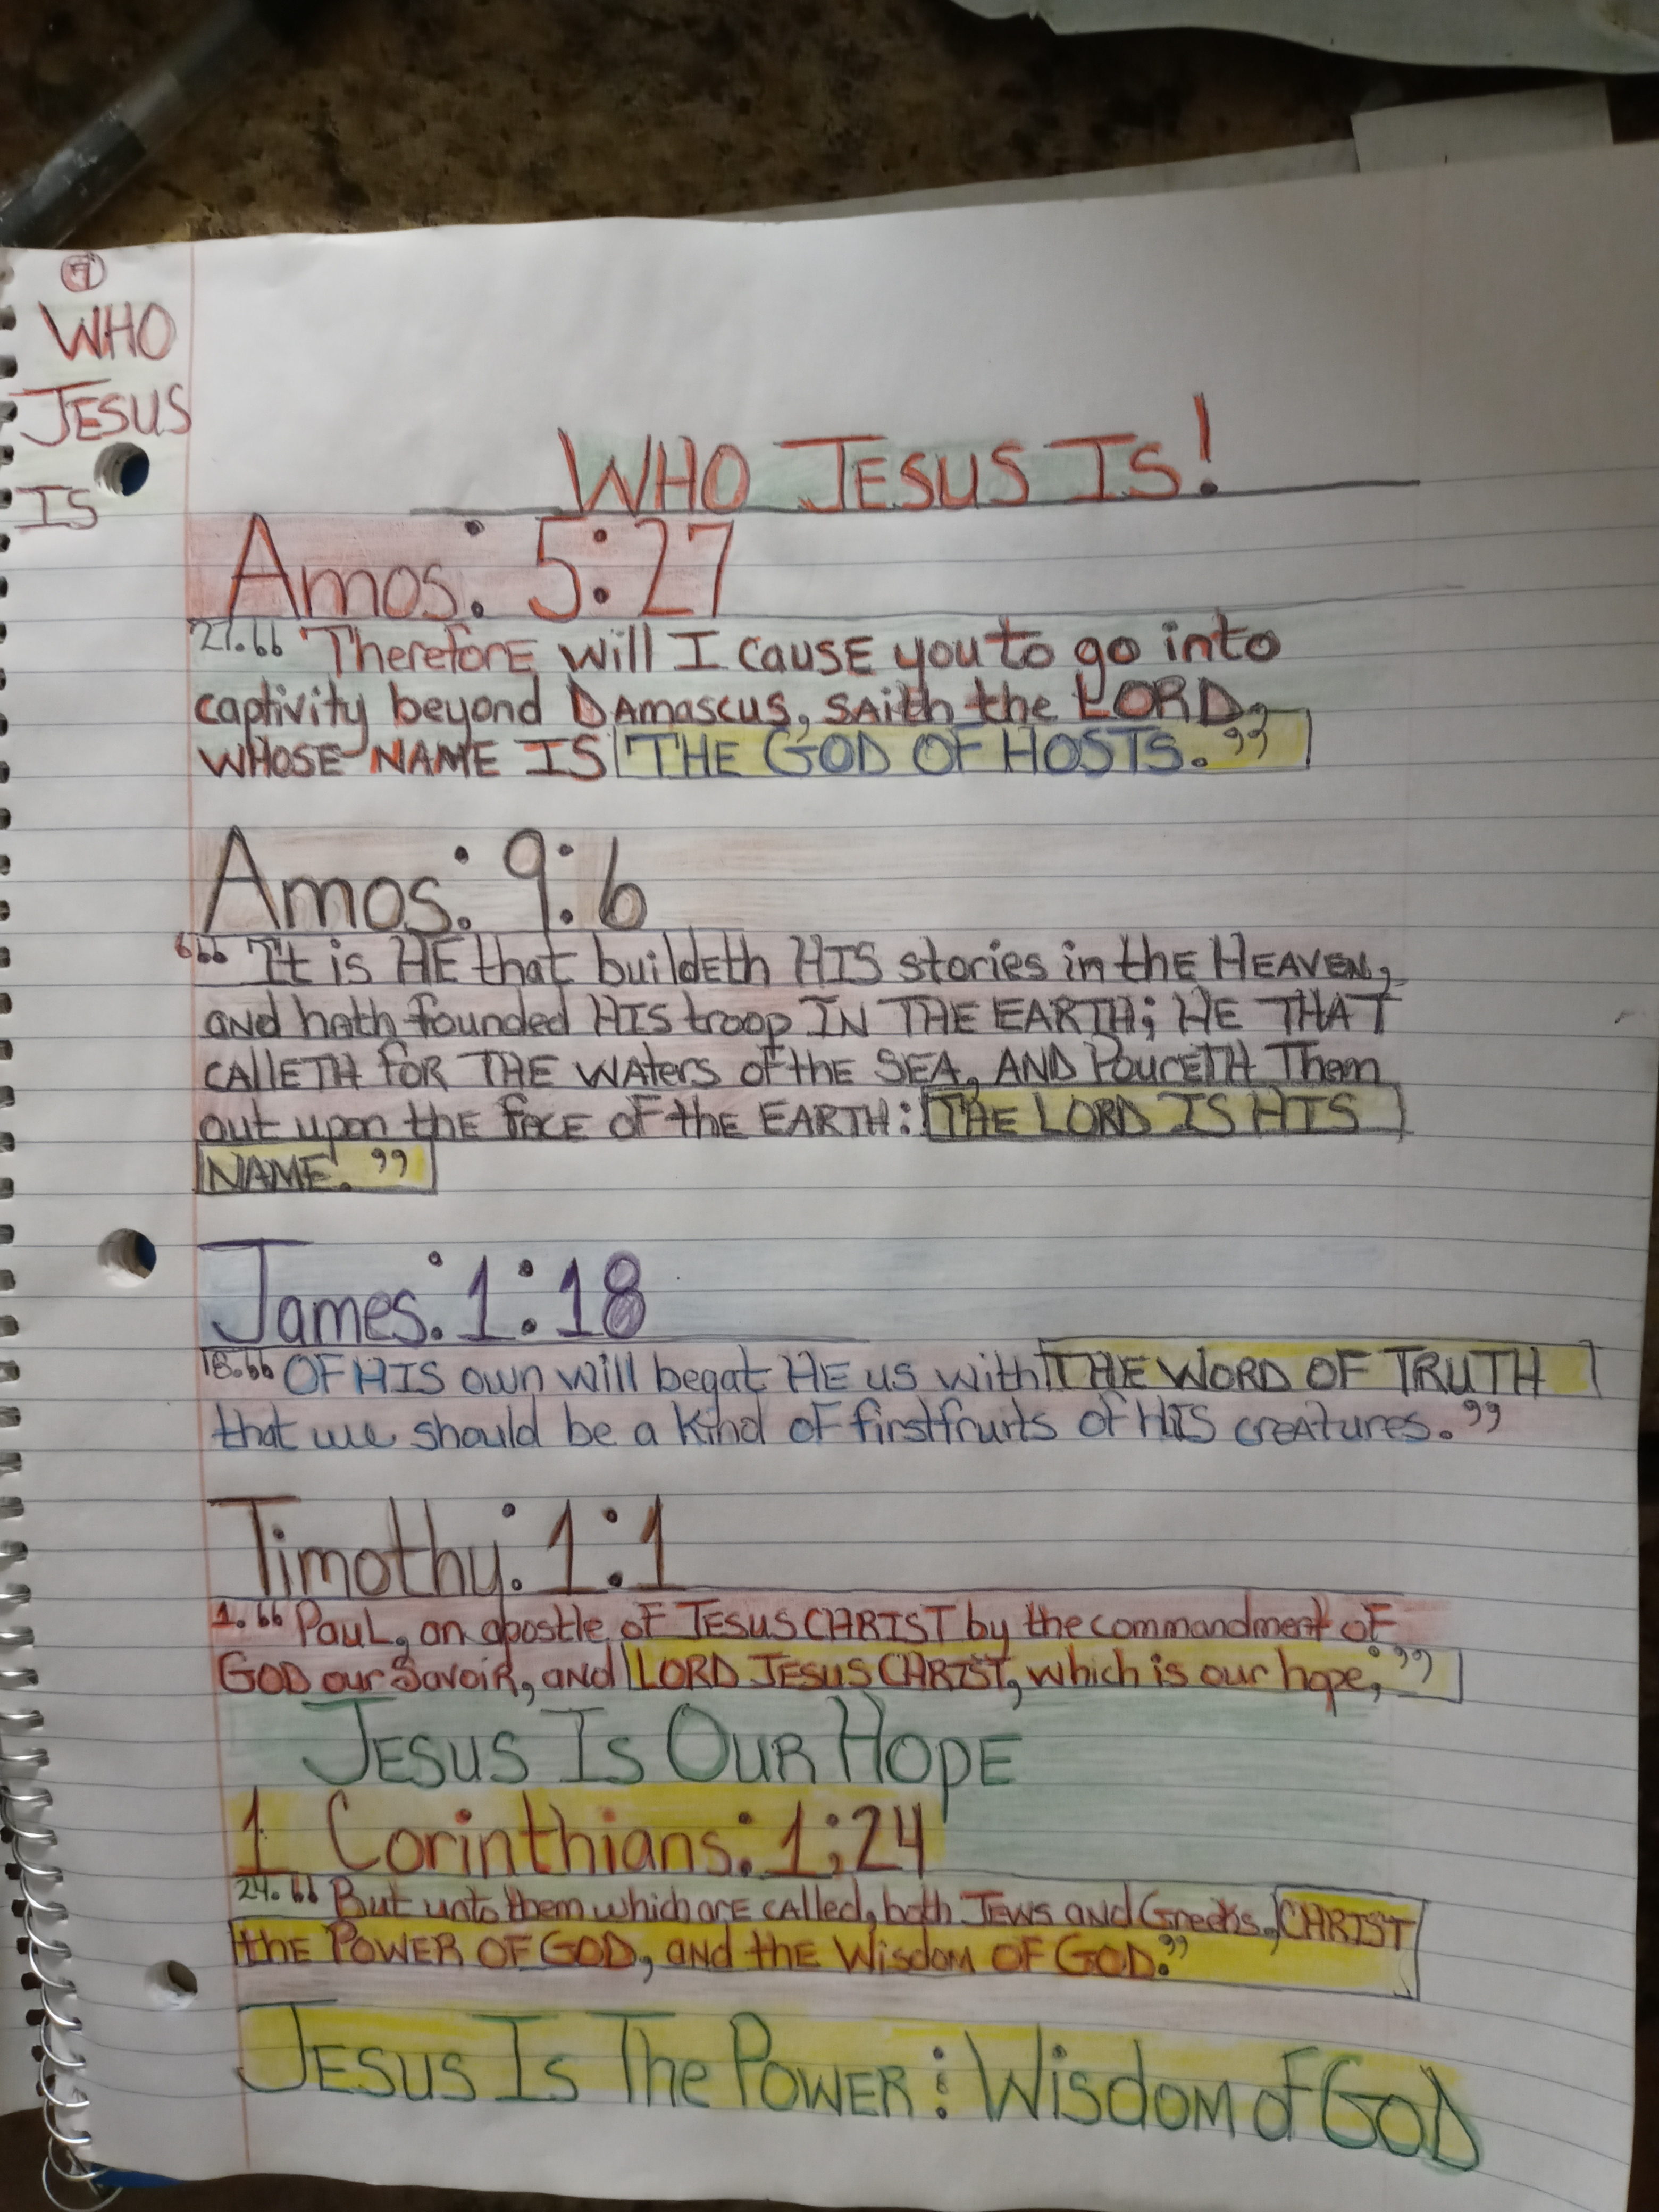 7
WHO
JESUS
IS
WHO JESUS IS!
Amos: 5:27
27. “Therefore will I cause you to go into
captivity beyond Damascus, saith the LORD,
WHOSE NAME IS THE GOD OF HOSTS.”
Amos: 9:6
6 “It is HE that buildeth HIS stories in the HEAVEN,
and hath founded HIS troop IN THE EARTH; HE THAT
CALLETH FOR THE WATERS of the SEA, AND Poureth Them
out upon the face of the EARTH: THE LORD IS HIS
NAME.”
James: 1:18
18. “OF HIS own will begat HE us with THE WORD OF TRUTH
that we should be a kind of firstfruits of HIS creatures.”
Timothy: 1:1
1. “Paul, an apostle of JESUS CHRIST by the commandment of
GOD our Savoir, and LORD JESUS CHRIST, which is our hope;”
JESUS IS OUR HOPE
1 Corinthians: 1;24
24. “But unto them which are called, both Jews and Greeks, CHRIST
the POWER OF GOD, and the Wisdom OF GOD.”
JESUS IS The POWER : Wisdom of GOD